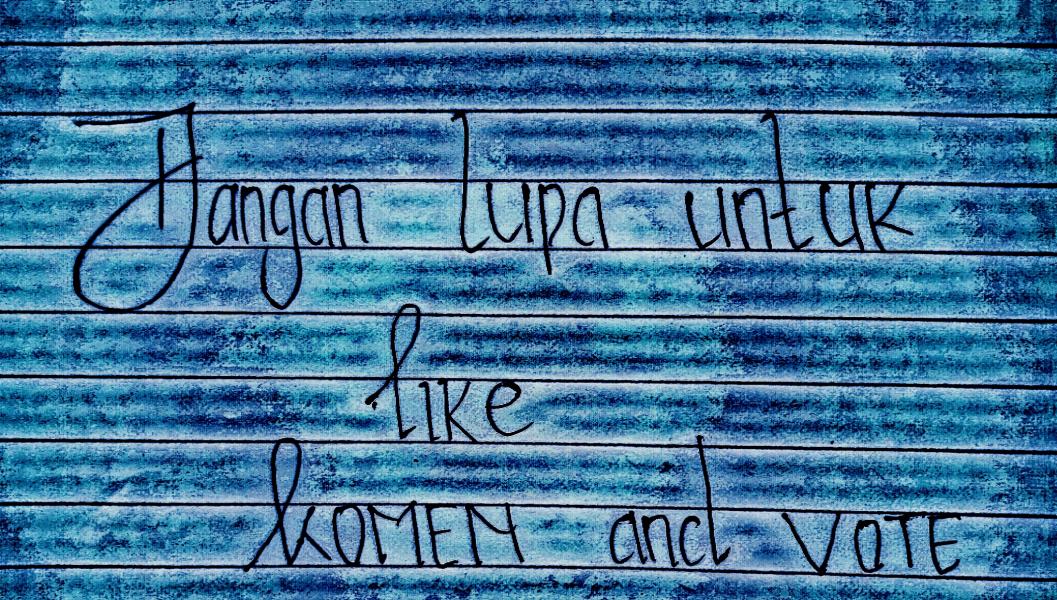 Jangan lupa untuk
like
komen and vote